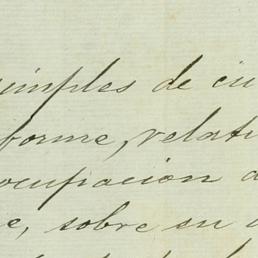 simples de cu
forme, relati
ocupación d
e, sobre su